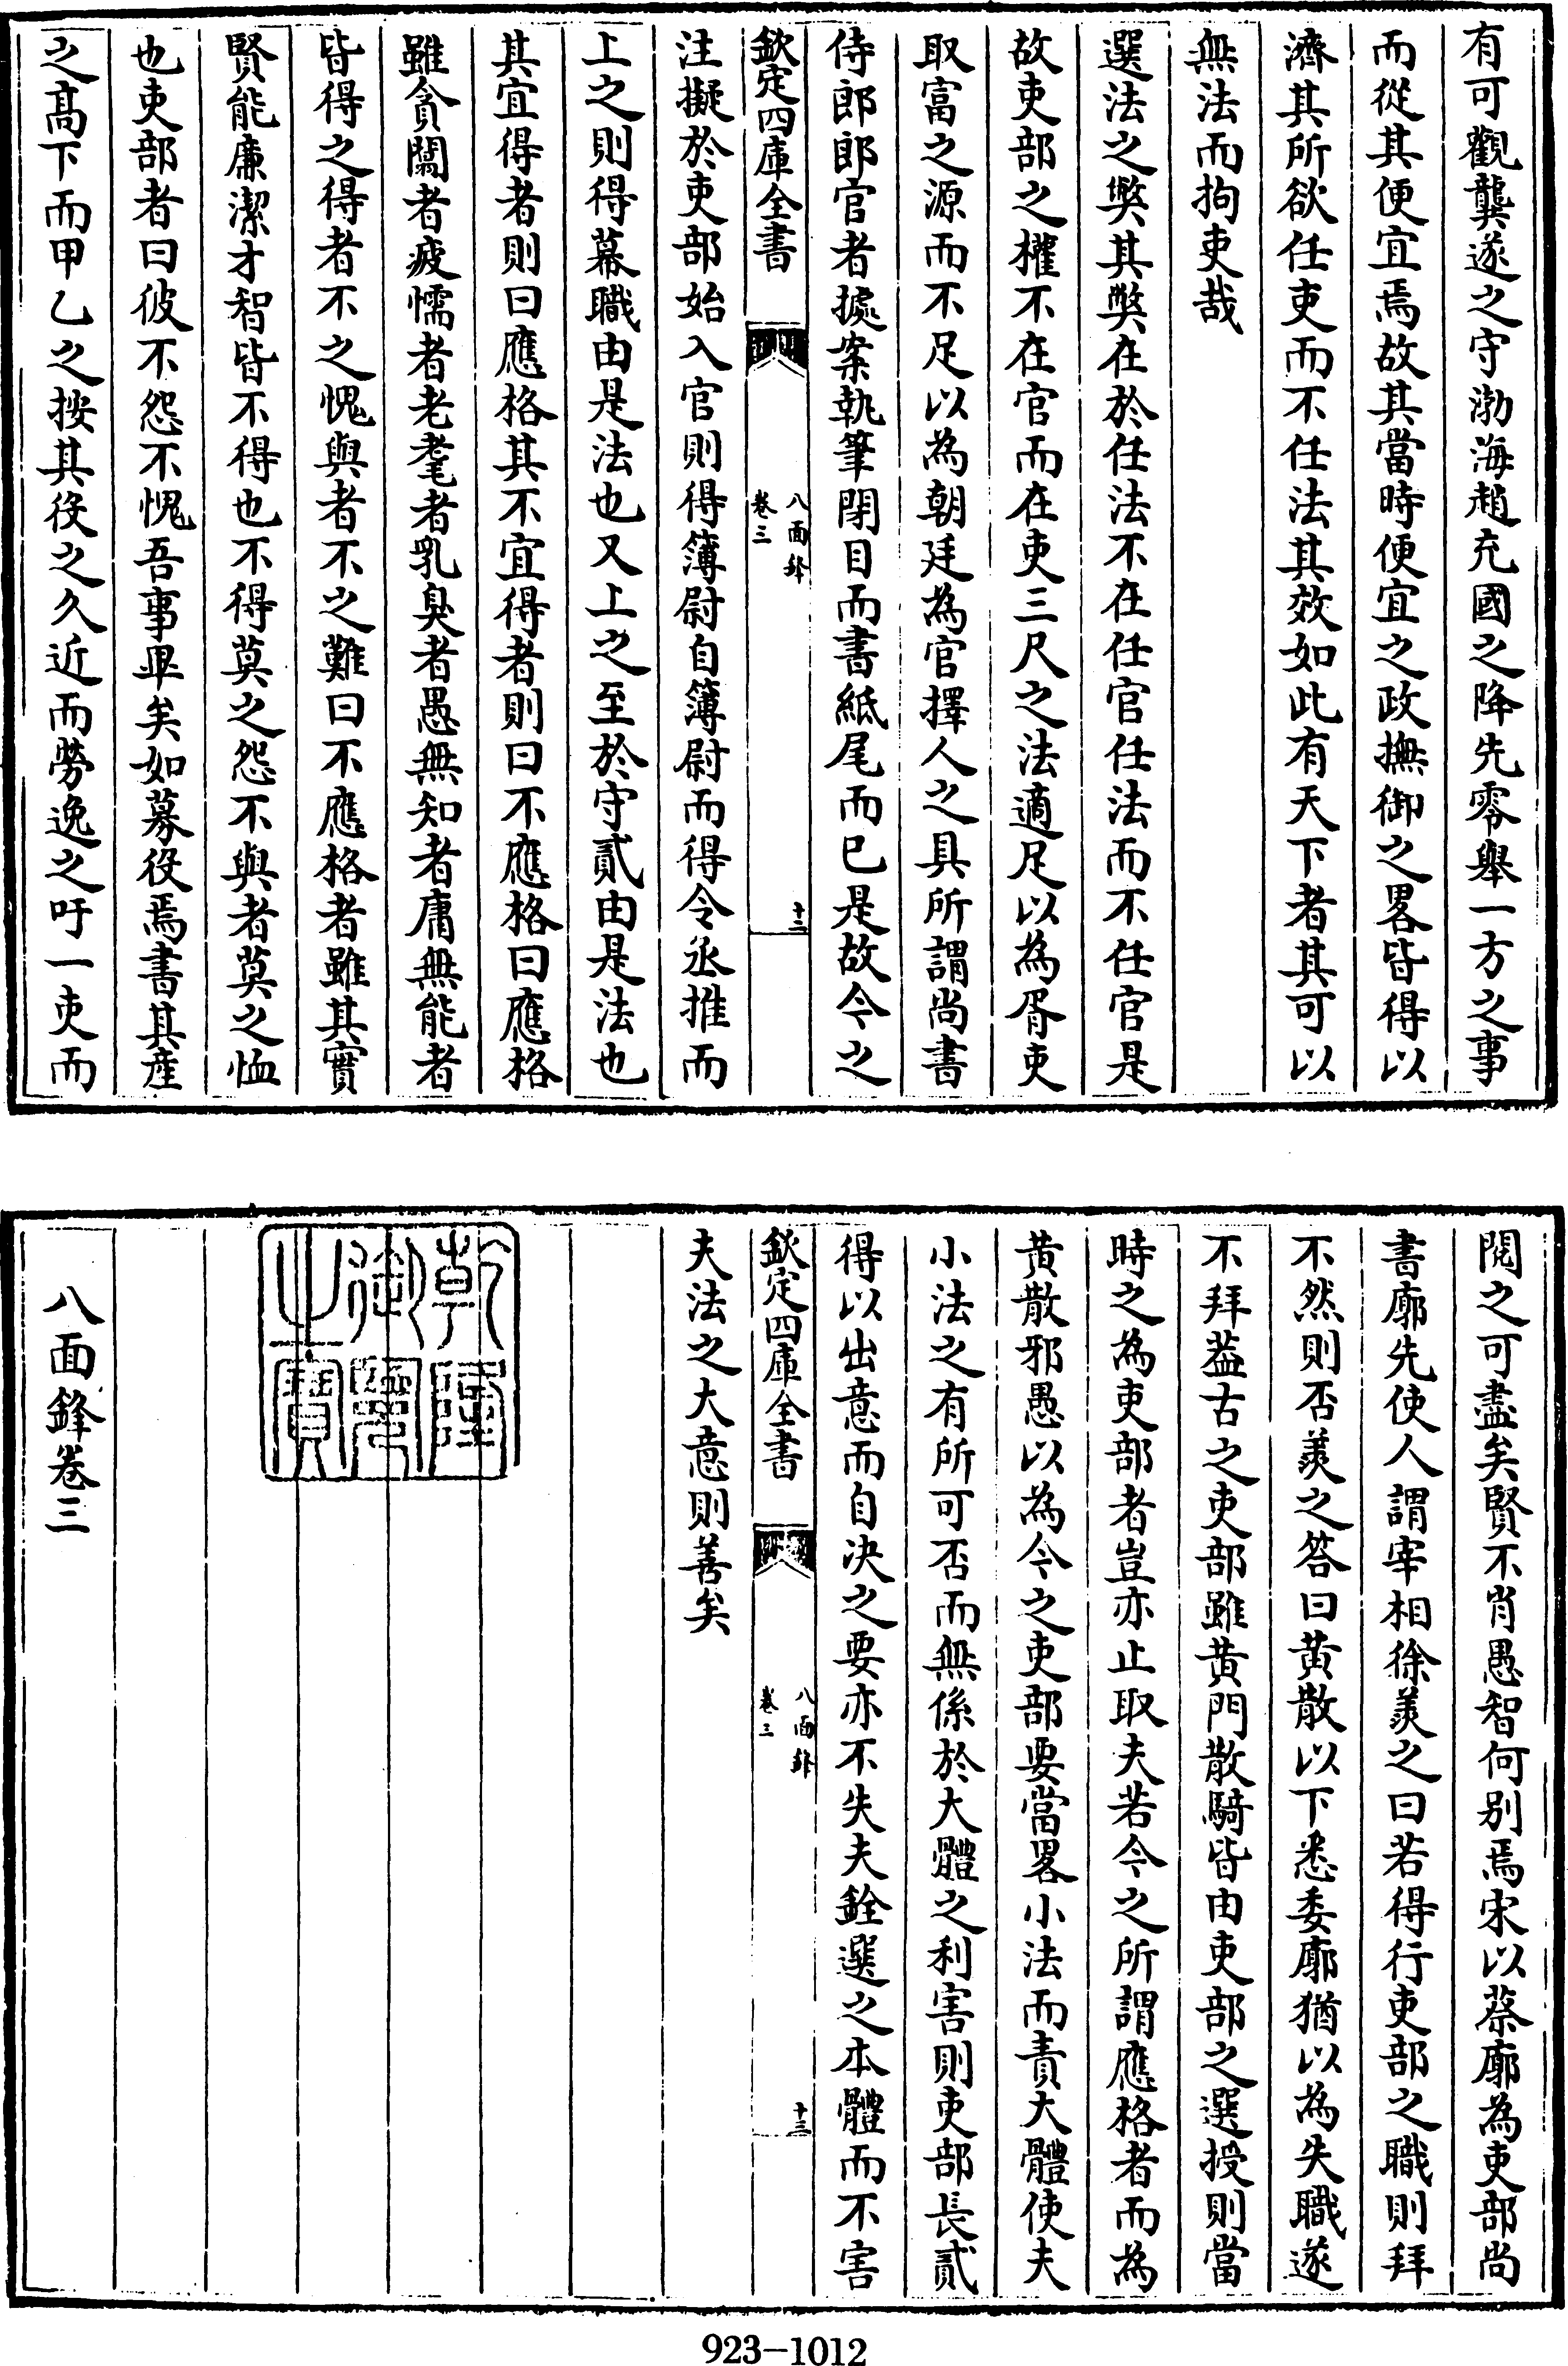 有可觀龔遂之守渤海趙充國之降先零舉一方之事
而從其便宜焉故其當時便宜之政撫御之畧皆得以
濟其所欲任吏而不任法其效如此有天下者其可以
無法而拘吏哉
選法之弊其弊在於任法不在任官任法而不任官是
故吏部之權不在官而在吏三尺之法適足以為胥吏
取富之源而不足以為朝廷為官擇人之具所謂尚書
侍郎郎官者據案執筆閉目而書紙尾而已是故今之
欽定四庫全書
八面鋒
卷三
十二
注擬於吏部始入官則得簿尉自簿尉而得令丞推而
上之則得幕職由是法也又上之至於守貳由是法也
其宜得者則曰應格其不宜得者則曰不應格曰應格
雖貪闒者疲懦者老耄者乳臭者愚無知者庸無能者
皆得之得者不之愧與者不之難曰不應格者雖其實
賢能廉潔才智皆不得也不得莫之怨不與者莫之恤
也吏部者曰彼不怨不愧吾事畢矣如募役焉書其產
之高下而甲乙之按其役之久近而勞逸之吁一吏而
閱之可盡矣賢不肖愚智何别焉宋以蔡廓為吏部尚
書廓先使人謂宰相徐羨之曰若得行吏部之職則拜
不然則否羨之答曰黄散以下悉委廓猶以為失職遂
不拜葢古之吏部雖黄門散騎皆由吏部之選授則當
時之為吏部者豈亦止取夫若今之所謂應格者而為
黄散邪愚以為今之吏部要當畧小法而責大體使夫
小法之有所可否而無係於大體之利害則吏部長貳
得以出意而自决之要亦不失夫銓選之本體而不害
欽定四庫全書
八面鋒
卷三
十三
夫法之大意則善矣
乾隆御覽之寶
八面鋒卷三
923-1012